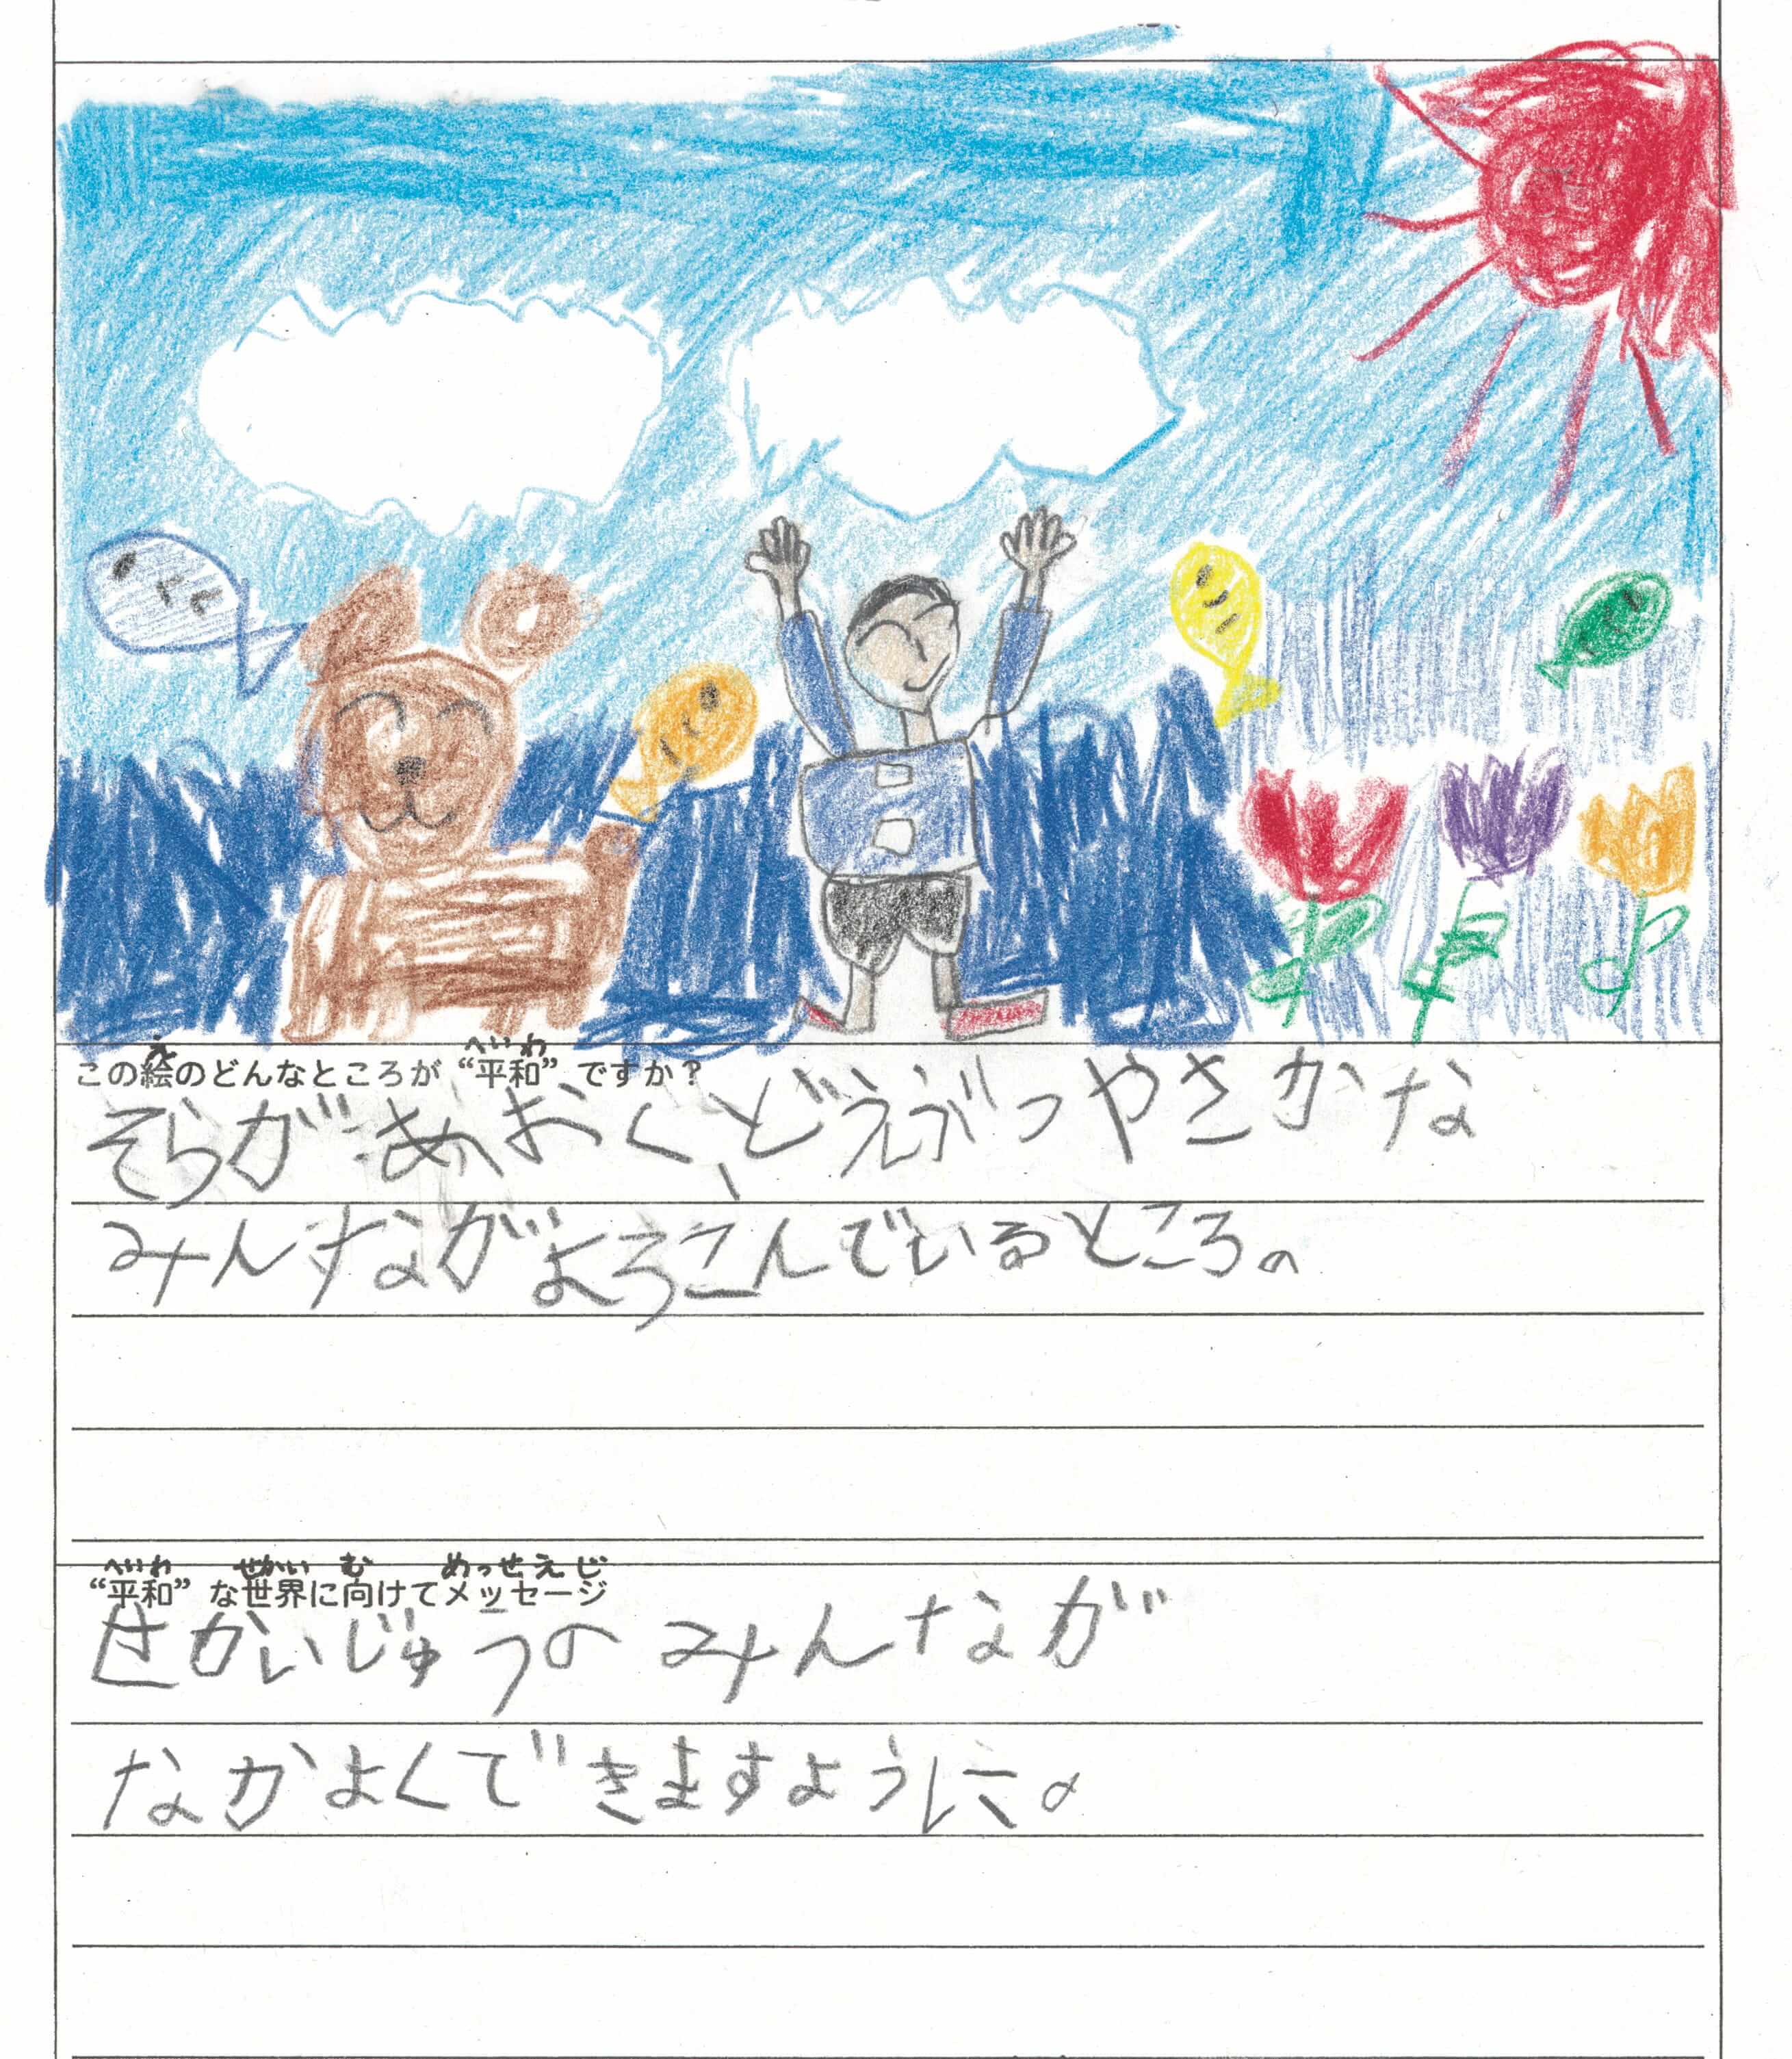 え へいわ
この絵のどんなところが“平和”ですか?
そらがあおく、どえぶつやさかな
みんながよろこんでいるところ。
へいわ せかい む めっせえじ
“平和”な世界に向けてメッセージ
せかいじゅうのみんなが
なかよくできますように。